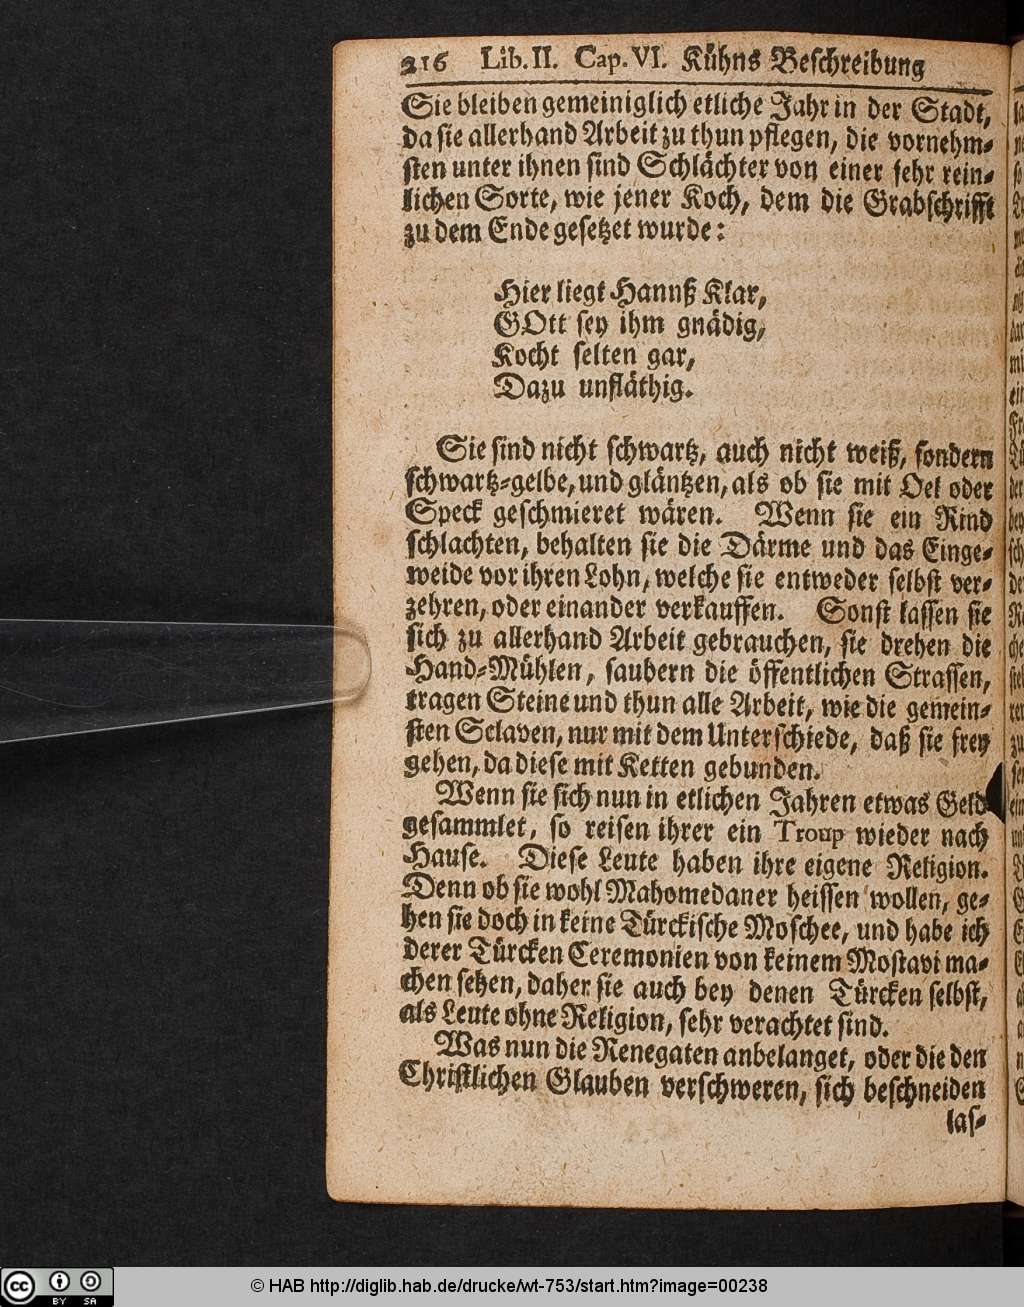 216 Lib. II. Cap. VI. Kühns Beschreibung
Sie bleiben gemeiniglich etliche Jahr in der Stadt,
da sie allerhand Arbeit zu thun pflegen, die vornehm-
sten unter ihnen sind Schlächter von einer sehr rein-
lichen Sorte, wie jener Koch, dem die Grabschrifft
zu dem Ende gesetzet wurde:
Hier liegt Hannß Klar,
GOtt sey ihm gnädig,
Kocht selten gar,
Dazu unfläthig.
Sie sind nicht schwartz, auch nicht weiß, sondern
schwartz-gelbe, und gläntzen, als ob sie mit Oel oder
Speck geschmieret wären. Wenn sie ein Rind
schlachten, behalten sie die Därme und das Einge-
weide vor ihren Lohn, welche sie entweder selbst ver-
zehren, oder einander verkauffen. Sonst lassen sie
sich zu allerhand Arbeit gebrauchen, sie drehen die
Hand-Mühlen, saubern die öffentlichen Strassen,
tragen Steine und thun alle Arbeit, wie die gemein-
sten Sclaven, nur mit dem Unterschiede, daß sie frey
gehen, da diese mit Ketten gebunden.
Wenn sie sich nun in etlichen Jahren etwas Geld
gesammlet, so reisen ihrer ein Troup wieder nach
Hause. Diese Leute haben ihre eigene Religion.
Denn ob sie wohl Mahomedaner heissen wollen, ge-
hen sie doch in keine Türckische Moschee, und habe ich
derer Türcken Ceremonien von keinem Mostavi ma-
chen sehen, daher sie auch bey denen Türcken selbst,
als Leute ohne Religion, sehr verachtet sind.
Was nun die Renegaten anbelanget, oder die den
Christlichen Glauben verschweren, sich beschneiden
las-
© HAB http://diglib.hab.de/drucke/wt-753/start.htm?image=00238
cc BY SA